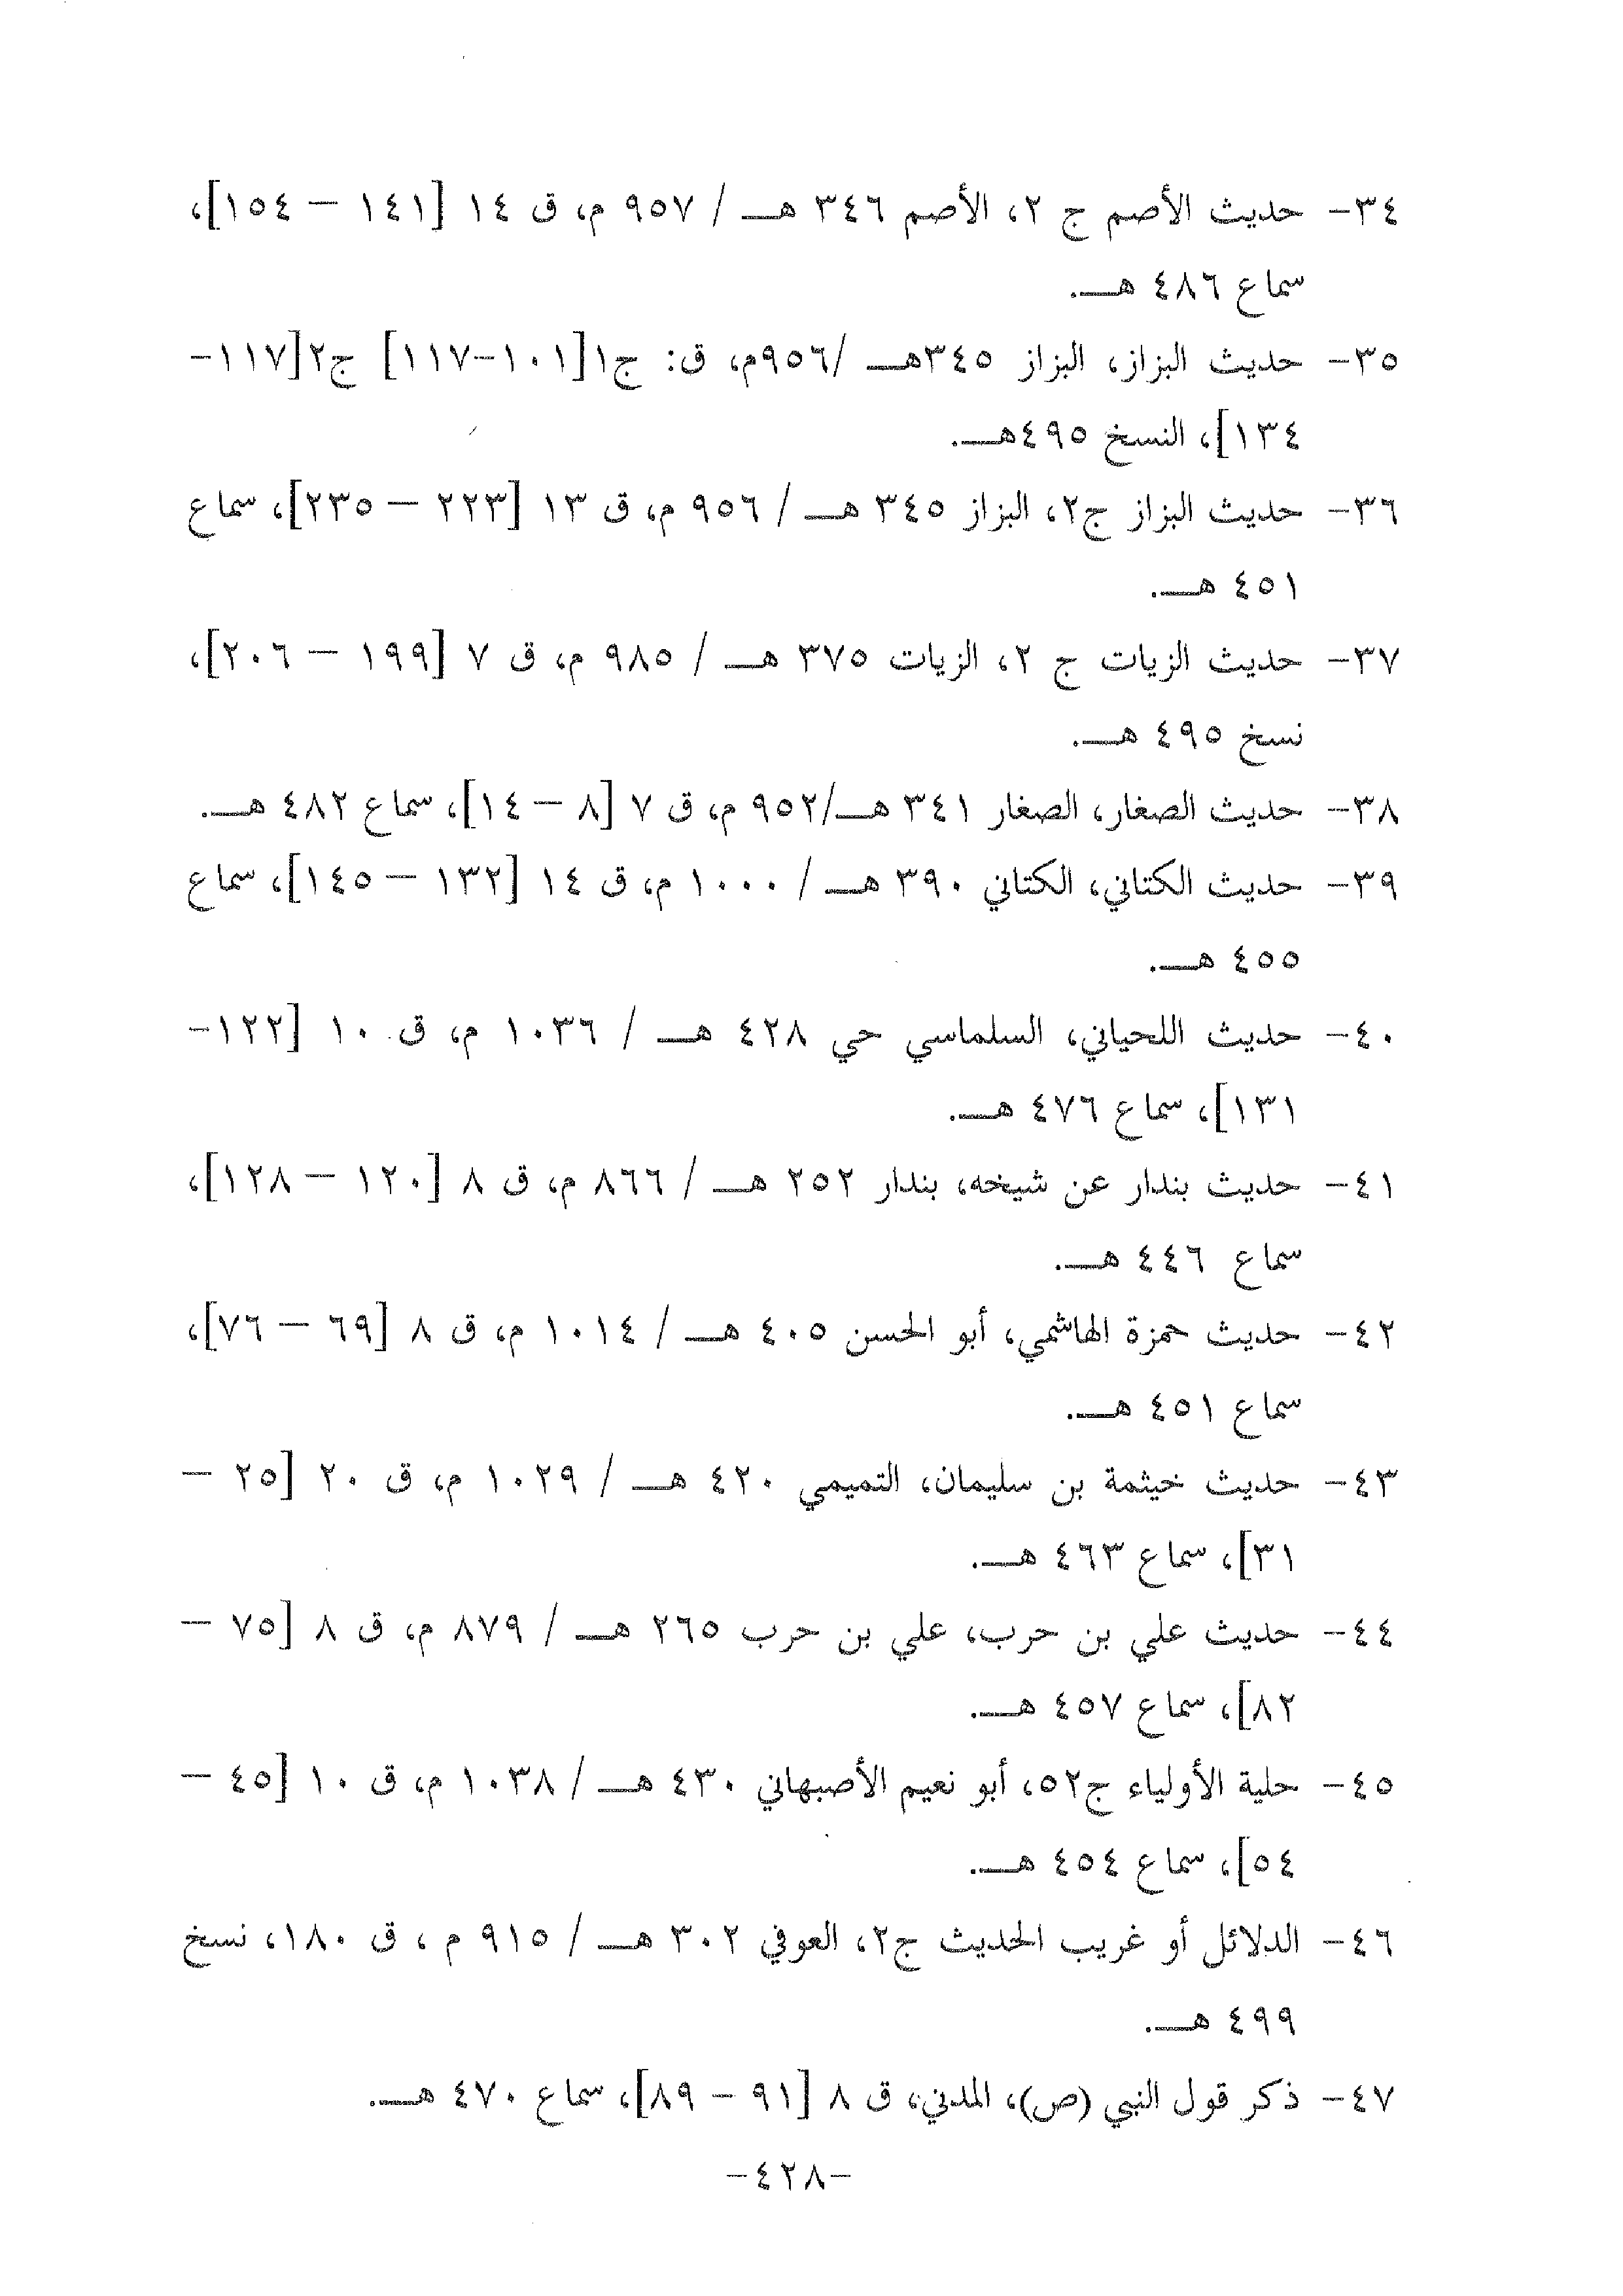 ٣٤- حديث الأصم ج ٢، الأصم ٣٤٦ هـ / ٩٥٧ م، ق ١٤ [١٤١ – ١٥٤]،
سماع ٤٨٦ هـ.
٣٥- حديث البزاز، البزاز ٣٤٥هـ /٩٥٦م، ق: ج١[١٠١-١١٧] ج٢[١١٧-
١٣٤]، النسخ ٤٩٥هـ.
٣٦- حديث البزاز ج٢، البزاز ٣٤٥ هـ / ٩٥٦ م، ق ١٣ [٢٢٣ – ٢٣٥]، سماع
٤٥١ هـ.
٣٧- حديث الزيات ج ٢، الزيات ٣٧٥ هـ / ٩٨٥ م، ق ٧ [١٩٩ – ٢٠٦]،
نسخ ٤٩٥ هـ.
٣٨- حديث الصغار، الصغار ٣٤١ هـ/٩٥٢ م، ق ٧ [٨ – ١٤]، سماع ٤٨٢ هـ.
٣٩- حديث الكتاني، الكتاني ٣٩٠ هـ / ١٠٠٠ م، ق ١٤ [١٣٢ – ١٤٥]، سماع
٤٥٥ هـ.
٤٠- حديث اللحياني، السلماسي حي ٤٢٨ هـ / ١٠٣٦ م، ق ١٠ [١٢٢-
١٣١]، سماع ٤٧٦ هـ.
٤١- حديث بندار عن شيخه، بندار ٢٥٢ هـ / ٨٦٦ م، ق ٨ [١٢٠ – ١٢٨]،
سماع ٤٤٦ هـ.
٤٢- حديث حمزة الهاشمي، أبو الحسن ٤٠٥ هـ / ١٠١٤ م، ق ٨ [٦٩ – ٧٦]،
سماع ٤٥١ هـ.
٤٣- حديث خيثمة بن سليمان، التميمي ٤٢٠ هـ / ١٠٢٩ م، ق ٢٠ [٢٥ –
٣١]، سماع ٤٦٣ هـ.
٤٤- حديث علي بن حرب، علي بن حرب ٢٦٥ هـ / ٨٧٩ م، ق ٨ [٧٥ –
٨٢]، سماع ٤٥٧ هـ.
٤٥- حلية الأولياء ج٥٢، أبو نعيم الأصبهاني ٤٣٠ هـ / ١٠٣٨ م، ق ١٠ [٤٥ –
٥٤]، سماع ٤٥٤ هـ.
٤٦- الدلائل أو غريب الحديث ج٢، العوفي ٣٠٢ هـ / ٩١٥ م ، ق ١٨٠، نسخ
٤٩٩ هـ.
٤٧- ذكر قول النبي (ص)، المدني، ق ٨ [٩١ – ٨٩]، سماع ٤٧٠ هـ.
-٤٢٨-